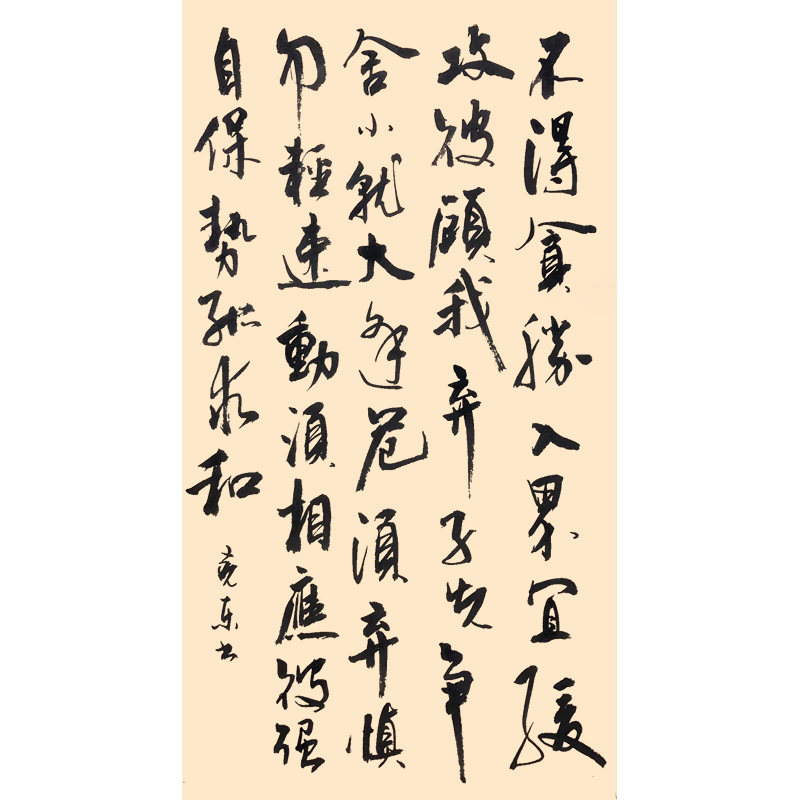 不得貪勝入界宜緩
攻彼顧我弃子先争
舍小就大逢危須弃慎
勿輕速動須相應彼强
自保勢孤求和
堯東书